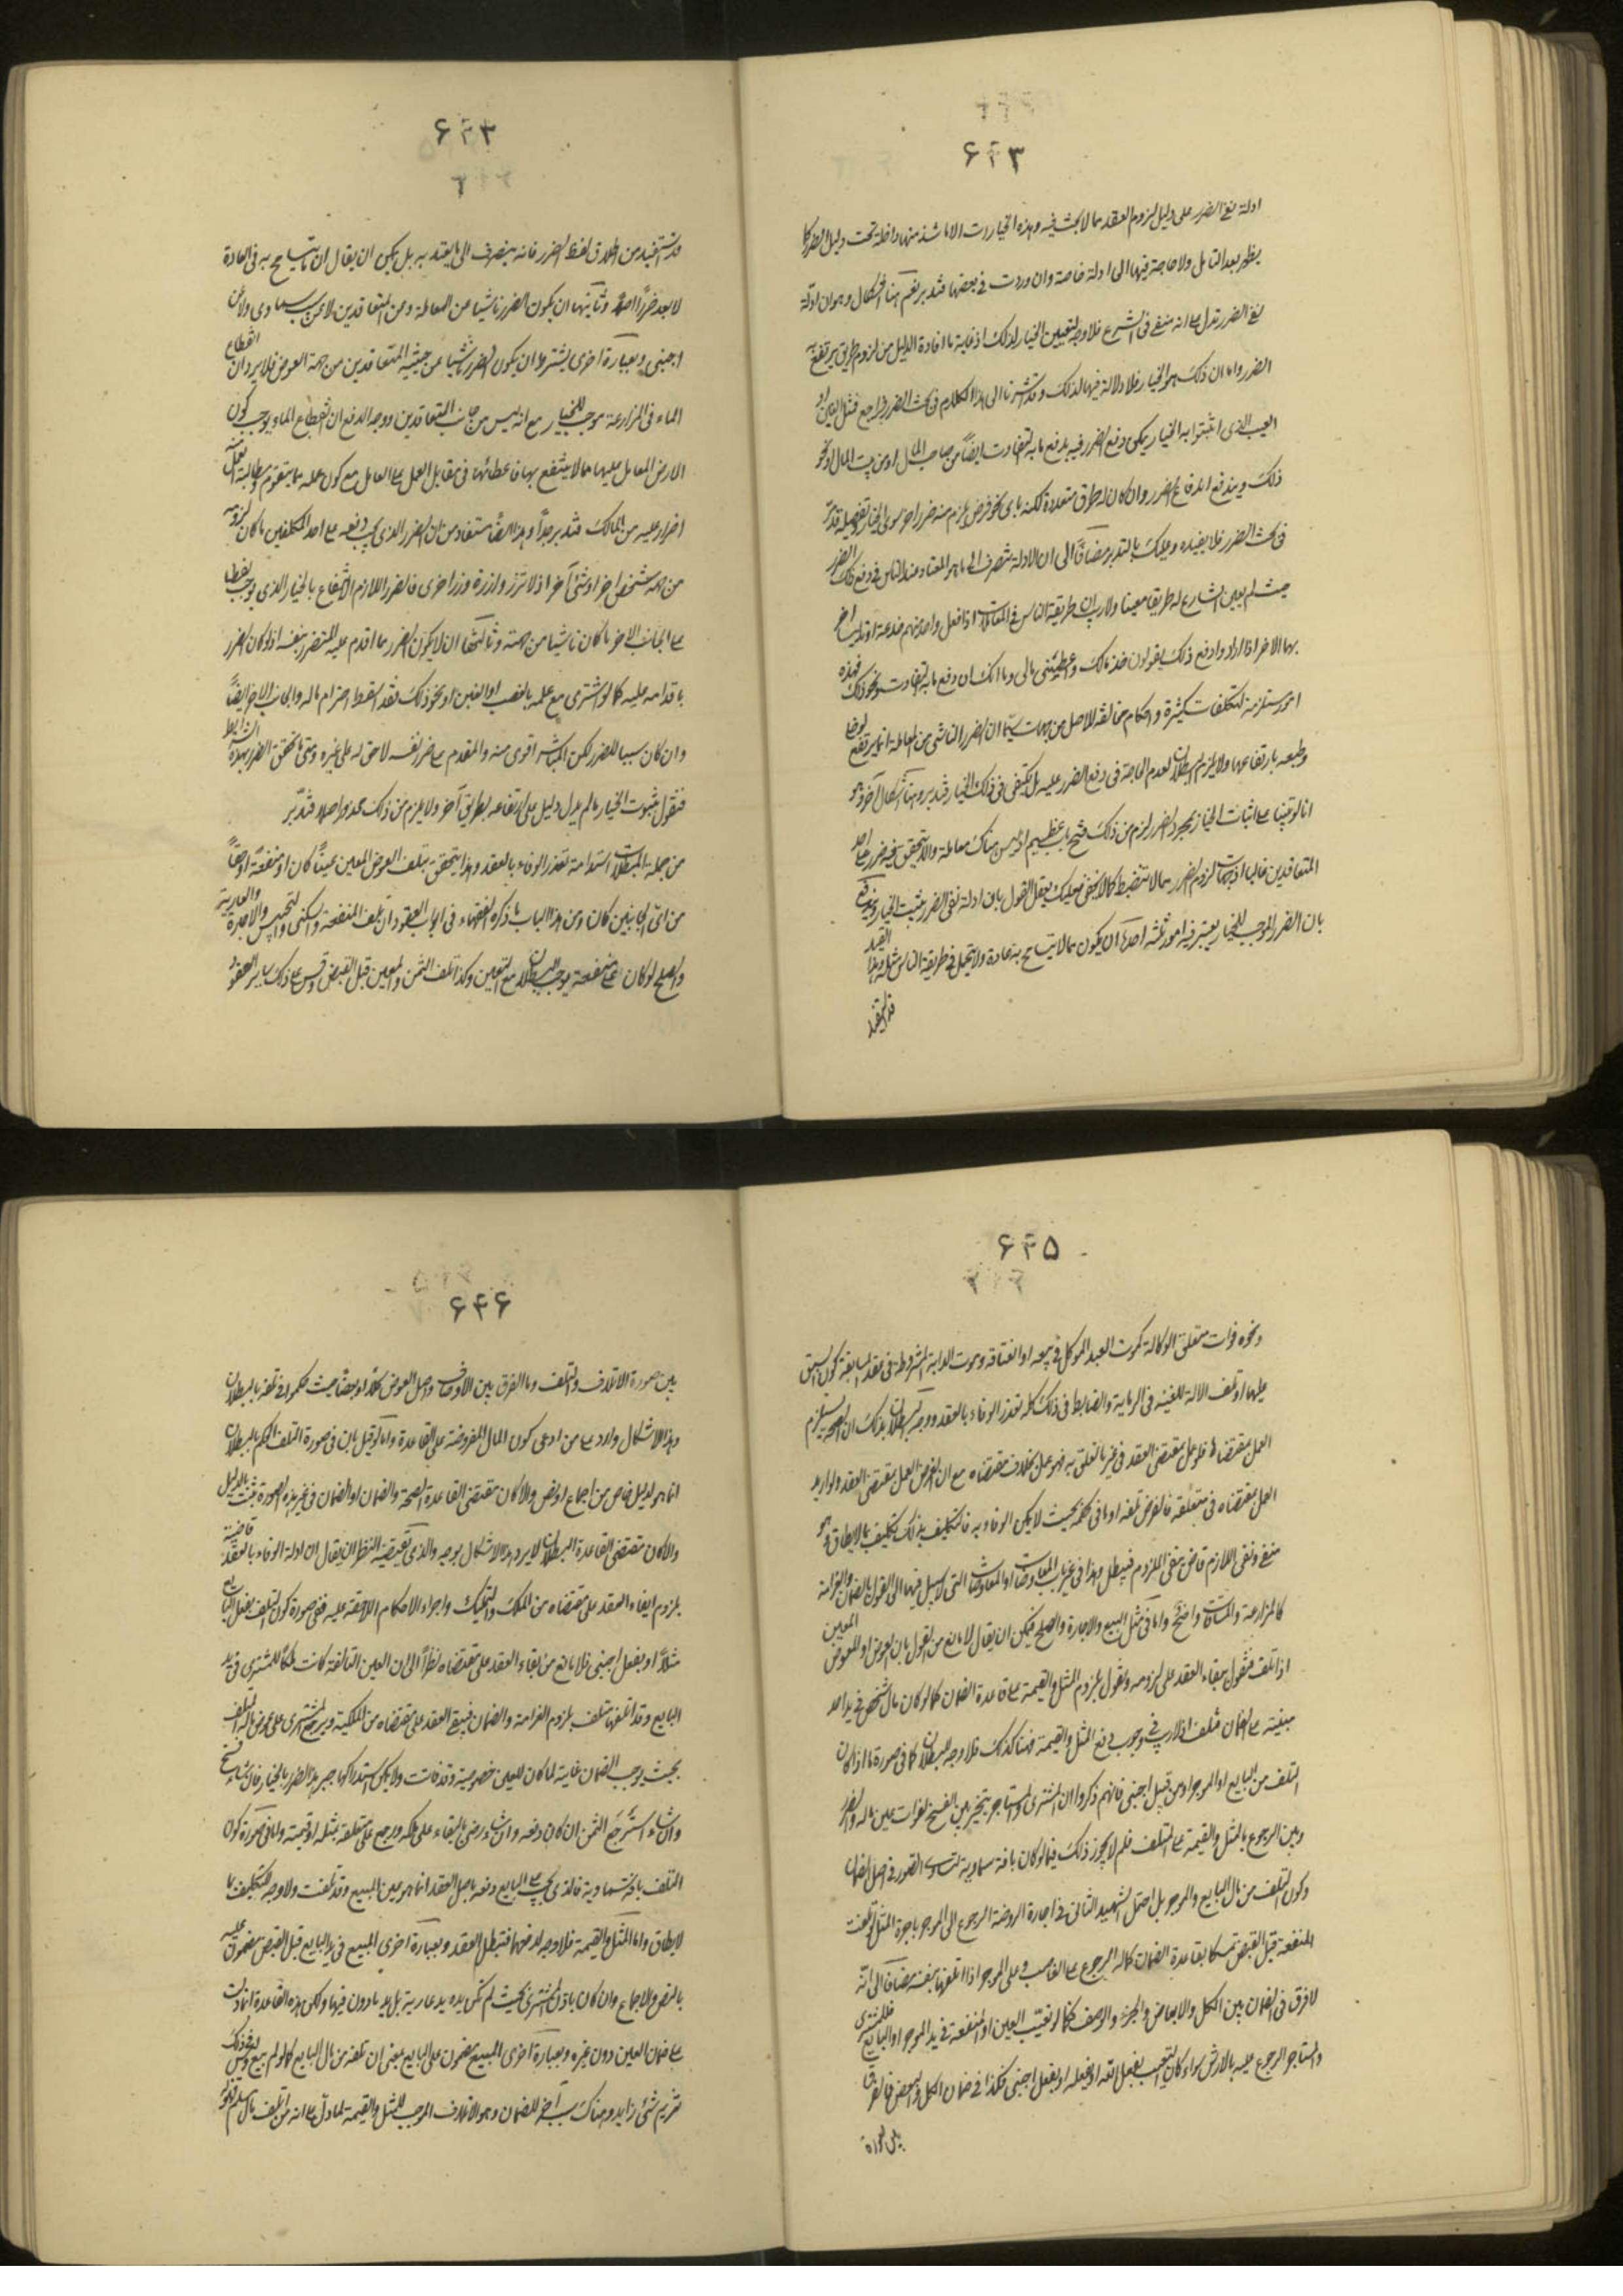 ۶۴۳
ادلة نفي الضرر على دليل لزوم العقد مما لا بحث فيه وهذه الخيارات الا ما شذ منها داخلة تحت دليل الضرر كما
يظهر بعد التأمل ولا حاجة فيها الى ادلة خاصة وان وردت في بعضها فتدبر نعم هنا اشكال وهو ان ادلة
نفي الضرر تدل على انه منفي في الشرع فلا وجه لتعيين الخيار لذلك اذ غاية ما افادة الدليل من لزوم طريق يرتفع به
الضرر واما ان ذلك هو الخيار فلا دلالة فيها لذلك وقد اشرنا الى هذا الكلام في بحث الضرر فراجع فمثل الغبن او
العيب الذي اثبتوا به الخيار يمكن دفع الضرر فيه بدفع ما به التفاوت ايضاً من صاحب المال او من بيت المال او نحو
ذلك ويندفع اندفاع الضرر وان كان له طرق متعددة لكنه باي نحو فرض يلزم منه ضرر اخر سوى الخيار وتفصيله قد مر
في بحث الضرر فلا نعيده وعليك بالتدبر مضافاً الى ان الادلة تنصرف الى ما هو المعتاد عند الناس في دفع ذلك الضرر
حيث لم يعين الشارع له طريقا معينا ولا ريب ان طريقة الناس في المعاملات اذا فعل واحد منهم خدعة او تدليسا اخر
بها الاخر اذا ارادوا دفع ذلك يقولون خذ مالك واعطيتني مالي وما انك ان دفع ما به التفاوت ونحو ذلك فهذه
امور مستلزمة لتكلفات كثيرة واحكام مخالفة للاصل من جهات سيما ان الضرر الناشي من المعاملة انما يرتفع لوضا
وطبعه بارتفاعها ولا يلزم البطلان لعدم الحاجة في دفع الضرر عليه بل يكتفى في ذلك الخيار فتدبر وهنا اشكال آخر وهو
انا لو بنينا على اثبات الخيار بمجرد الضرر لزم من ذلك فتح باب عظيم اذ ليس هناك معاملة والا يتحقق فيه ضرر على احد
المتعاقدين غالبا اذ جهات لزوم الضرر مما لا تنضبط كما لا يخفى عليك فبطل القول بان ادلة نفي الضرر يثبت الخيار ويندفع
بان الضرر الموجب للخيار يعتبر فيه امور ثلثة احدها ان يكون مما لا يتسامح به عادة ولا يتحمل في طريقة الناس مثله وهذا القيد
قد استفيد
۶۴۴
قد استفيد من اطلاق لفظ الضرر فانه ينصرف الى ما يعتد به بل يمكن ان يقال ان ما يتسامح به في العادة
لا يعد ضررا اصلاً وثانيها ان يكون الضرر ناشيا عن المعاملة ومن المتعاقدين لا من سبب سماوي ولا من
اجنبي وبعبارة اخرى يشترط ان يكون الضرر ناشيا عن جنبة المتعاقدين من جهة العوض فلا يرد ان انقطاع
الماء في المزارعة موجب للخيار مع انه ليس من جانب المتعاقدين ووجه الدفع ان انقطاع الماء يوجب كون
الارض المعامل عليها مما لا ينتفع بها فاعطائها في مقابل العمل على العامل مع كون عمله مما يتقوم ومطالبته العمل منه
اضرار عليه من المالك فتدبر جداً وهذا ايضاً مستفاد من ان الضرر الذي يجب دفعه على احد المكلفين ما كان لزومه
من جهة شخص اخر او شئ آخر اذ لا تزر وازرة وزر اخرى فالضرر اللازم الاندفاع بالخيار الذي يوجب لفظ
على الجانب الاخر ما كان ناشيا من جهته وثالثها ان لا يكون الضرر مما اقدم عليه المتضرر بنفسه اذ لو كان الضرر
باقدامه عليه كما لو اشترى مع علمه بالعيب او الغبن او نحو ذلك فقد اسقط احترام ماله والجانب الاخر ايضاً
وان كان سببا للضرر لكن المباشر اقوى منه والمقدم على ضرر نفسه لا حق له على غيره ومتى ما تحقق الضرر بهذه الشرائط
فنقول بثبوت الخيار ما لم يدل دليل على ارتفاعه بطريق آخر ولا يلزم من ذلك محذور اصلا فتدبر
من جملة المبطلات استدامة تعذر الوفاء بالعقد وهذا يتحقق بتلف العوض المعين عيناً كان او منفعة او حقاً
من اي الجانبين كان ومن هذا الباب ما ذكره الفقهاء في ابواب العقود ان تلف المنفعة والسكنى والحبس والاجرة والعارية
والصلح لو كان على منفعة يوجب البطلان مع التعين وكذا تلف الثمن والمعين قبل القبض وقس على ذلك ساير العقود
۶۴۵
ونحوه فوات متعلق الوكالة كموت العبد الموكل في بيعه او انعتاقه وموت الدابة المشروطة في عقد المسابقة كون السبق
عليها او تلف الالة المعينة في الرماية والضابط في ذلك كله تعذر الوفاء بالعقد ووجه البطلان بذلك ان الصحة يستلزم
العمل بمقتضاها فلو عمل بمقتضى العقد في غير ما تعلق به فهو عمل بخلاف مقتضاه مع ان الفرض العمل بمقتضى العقد ولو اريد
العمل بمقتضاه في متعلقه فالفرض تلفه او ما في حكمه بحيث لا يمكن الوفاء به فالتكليف بذلك تكليف بما لا يطاق وهو
منفي ونفي اللازم قاض بنفي الملزوم فيبطل وهذا في غير باب المعاوضات او المعاوضات التي لا سبيل فيها الى القول بالضمان والغرامة
كالمزارعة والمساقات واضح واما في مثل البيع والاجارة والصلح فيمكن ان يقال لا مانع من القول بان العوض او المعوض المعين
اذا تلف فنقول ببقاء العقد على لزومه ونقول بلزوم المثل والقيمة على قاعدة الضمان كما لو كان مال شخص في يد احد
مبنية على الضمان فتلف اذ لا ريب في وجوب دفع المثل والقيمة فهنا كذلك فلا وجه للبطلان كما في صورة ما اذا كان
التلف من البايع او الموجر او من قبل اجنبي فانهم ذكروا ان المشتري والمستاجر يتخير بين الفسخ لفوات عين ماله والضرر
وبين الرجوع بالمثل والقيمة على المتلف فلم لا يجوز ذلك فيما لو كان بافة سماوية لتساوى الصور في اصل الضمان
وكون التلف من مال البايع والموجر بل احتمل الشهيد الثاني في اجارة الروضة الرجوع الى الموجر باجرة المثل لو تلفت
المنفعة قبل القبض تمسكا بقاعدة الضمان كماله الرجوع على الغاصب وعلى الموجر اذا اتلفها بنفسه مضافاً الى انه
لا فرق في الضمان بين الكل والابعاض والجزء والوصف فكما لو تعيب العين او المنفعة في يد الموجر او البايع فللمشتري
والمستاجر الرجوع عليه بالارش سواء كان التعيب بفعل الله او بفعله او بفعل اجنبي فكذا في ضمان الكل والبعض فالفرق
بين صورة
۶۴۶
بين صورة الاتلاف والتلف وما الفرق بين الاوصاف واصل العوض كلاً او بعضا حيث حكموا في تلفه بالبطلان
وهذا الاشكال وارد على من ادعى كون المال المفروضة على القاعدة واما لو قيل بان في صورة التلف الحكم بالبطلان
انما هو لدليل خاص من اجماع او نص والا كان مقتضى القاعدة الصحة والضمان او الضمان في غير هذه الصورة يثبت بالدليل
والا كان مقتضى القاعدة البطلان لا يرد هذا الاشكال بوجه والذي يقتضيه النظر ان يقال ان ادلة الوفاء بالعقد قاضية
بلزوم ابقاء العقد على مقتضاه من الملك والتمليك واجراء الاحكام اللاحقة عليه ففي صورة كون التلف بفعل البايع
مثلاً او بفعل اجنبي فلا مانع من بقاء العقد على مقتضاه نظراً الى ان العين التالفة كانت ملكا للمشتري في يد
البايع وقد اتلفها متلف يلزوم الغرامة والضمان فيبقى العقد على مقتضاه من الملكية ويرجع المشتري على عوض ماله التلف
بحيث يوجب الضمان غايته لما كان للعين خصوصية وقد فات ولا يمكن استدراكها جبر هذا الضرر بالخيار فان شاء فسخ
وان شاء استرجع الثمن ان كان دفعه وان شاء رضي بالبقاء على ملكه ورجع على متلفه بمثله او قيمته واما في صورة كون
التلف بافة سماوية فالذي يجب على البايع دفعه باصل العقد انما هو عين المبيع وقد تلفت ولا وجه للتكليف بما
لا يطاق واما المثل والقيمة فلا وجه لدفعها فتبطل العقد وبعبارة اخرى المبيع في يد البايع قبل القبض مضمون عليه
بالنص والاجماع وان كان باذن المشتري بحيث لم تكن يده يد عارية بل يد ماذون فيها ولكن هذه القاعدة انما دلت
على ضمان العين دون غيره وبعبارة اخرى المبيع مضمون على البايع بمعنى ان تلفه من مال البايع كما لو لم يبع وليس في ذلك
تغريم شئ زايد وهناك سبب آخر للضمان وهو الاتلاف الموجب للمثل والقيمة لما دل على انه من اتلف مال مسلم فهو له